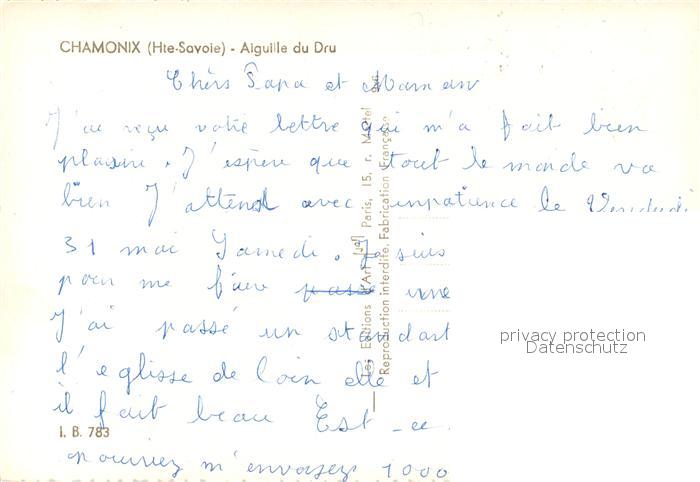 CHAMONIX (Hte-Savoie) - Aiguille du Dru
Chers Papa et Maman
J'ai reçu votre lettre qui m'a fait bien
plaisir. J'espere que tout le monde va
bien J'attend avec impatience le Vendredi
31 mai Samedi. Je suis
pour me faire passé une
J'ai passé un standart
l'eglisse de loin elle et
il fait beau Est-ce
pourriez m'envoyez 1000
I. B. 783
Les Editions d'Art Paris, 15, r. Martel
Reproduction interdite. Fabrication Française
privacy protection
Datenschutz